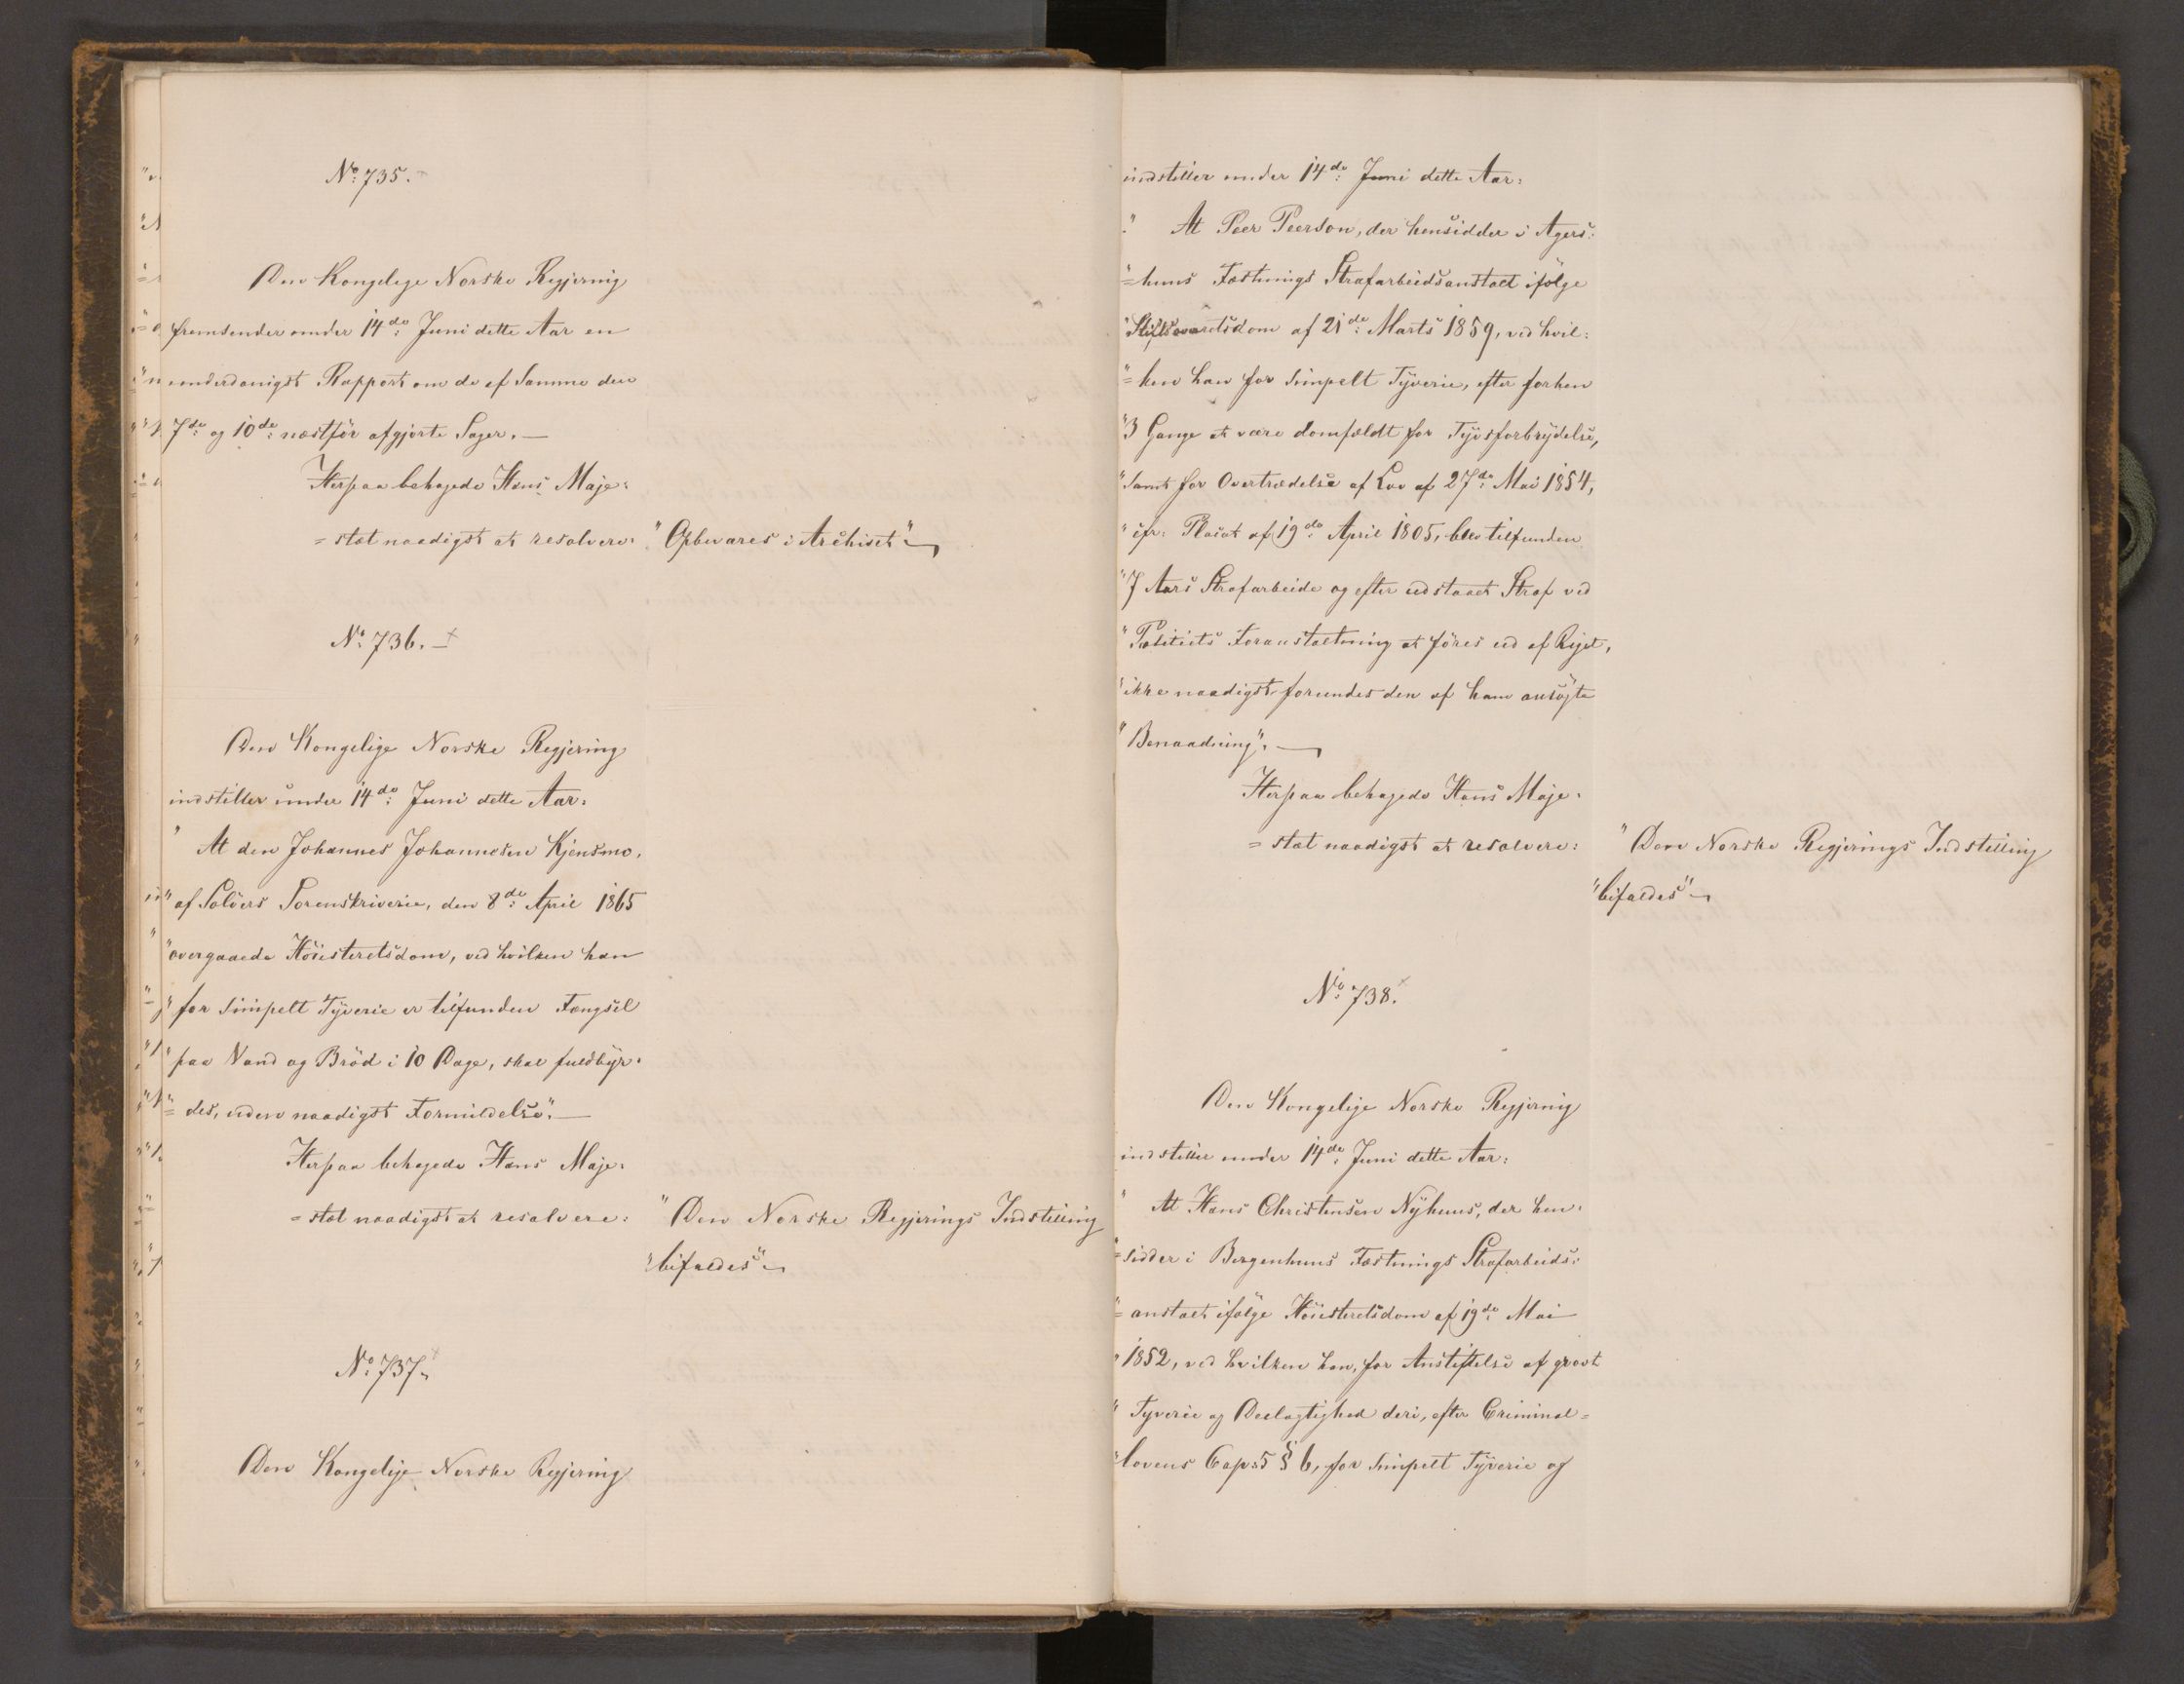 No. 735.
Den Kongelige Norske Regjering
fremsender under 14de Juni dette Aar en
underdanigst Rapport om de af Samme den
7de og 10de næstför afgjorte Sager. —
Herpaa behagede Hans Maje-
=stæt naadigst at resolvere: "Opbevares i Archivet"
No. 736. +
Den Kongelige Norske Regjering
indstiller under 14de Juni dette Aar:
" At den Johannes Johannesen Kjensmo,
" af Solöers Sorenskriverie, den 8de April 1865
" overgaaede Höiesteretsdom, ved hvilken han
" for simpelt Tyverie er tilfunden Fængsel
" paa Vand og Bröd i 10 Dage, skal fuldbyr-
"= des, uden naadigst Formildelse". —
Herpaa behagede Hans Maje-
=stæt naadigst at resolvere: "Den Norske Regjerings Indstilling
"bifaldes"
No. 737. +
Den Kongelige Norske Regjering
indstiller under 14de Juni dette Aar:
" At Peer Peerson, der hensidder i Agers-
"=huus Fæstnings Strafarbeidsanstalt ifölge
" Stiftsoverretsdom af 21de Marts 1859, ved hvil-
"=ken han for simpelt Tyverie, efter forhen
"3 Gange at være domfældt for Tyvsforbrydelse,
" samt for Overtrædelse af Lov af 27de Mai 1854,
" cfr: Placat af 19de April 1805, blev tilfunden
"7 Aars Strafarbeide og efter udstaaet Straf ved
" Politiets Foranstaltning at föres ud af Riget,
" ikke naadigst forundes den af ham ansögte
" Benaadning". —
Herpaa behagede Hans Maje-
=stæt naadigst at resolvere: "Den Norske Regjerings Indstilling
"bifaldes"
No. 738. +
Den Kongelige Norske Regjering
indstiller under 14de Juni dette Aar:
" At Hans Christensen Nyhuus, der hen-
"=sidder i Bergenhuus Fæstnings Strafarbeids-
"=anstalt ifölge Höiesteretsdom af 19de Mai
" 1852, ved hvilken han, for Anstiftelse af grovt
" Tyverie og Deelagtighed deri, efter Criminal=
" lovens Cap: 5 § 6, for simpelt Tyverie og